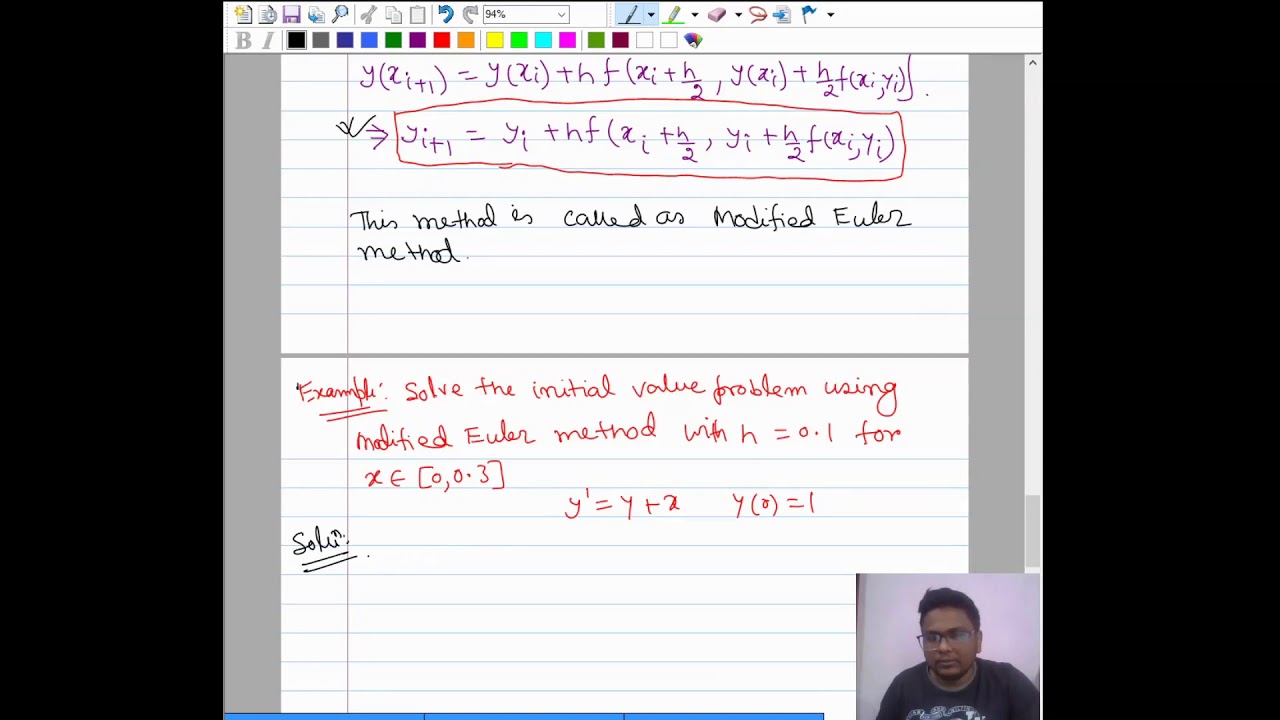 94%
B I
y(x_{i+1}) = y(x_i) + h f(x_i + h/2, y(x_i) + h/2 f(x_i, y_i)
⇒ y_{i+1} = y_i + h f(x_i + h/2, y_i + h/2 f(x_i, y_i)
This method is called as Modified Euler
method.
Example: Solve the initial value problem using
Modified Euler method with h = 0.1 for
x ∈ [0, 0.3]
y' = y + x y(0) = 1
Soluⁿ: